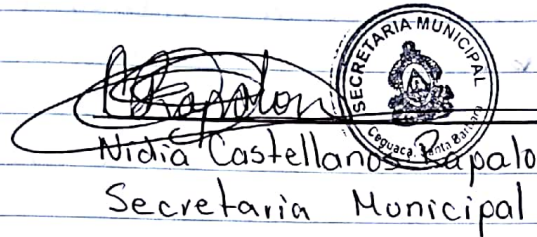 SECRETARIA MUNICIPAL
Ceguaca, Santa Barbara
Nidia Castellanos Rapalo
Secretaria Municipal